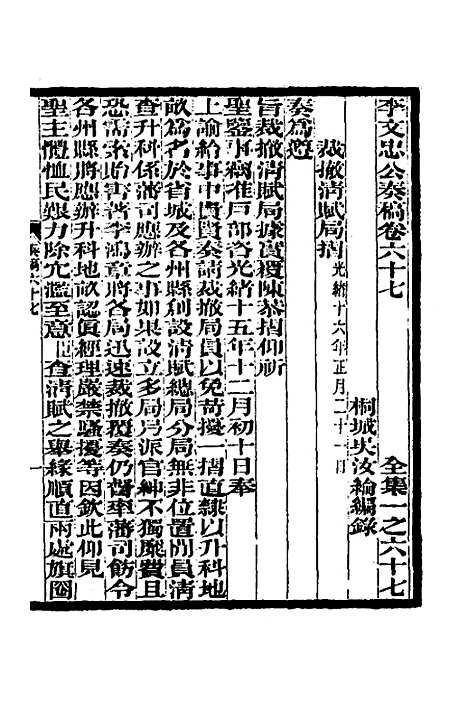 李文忠公奏稿卷六十七
全集一之六十七
桐城吳汝綸編錄
裁撤清賦局摺光緒十六年正月二十一日
奏為遵
旨裁撤清賦局據實覆陳恭摺仰祈
聖鑒事竊准戶部咨光緒十五年十二月初十日奉
上諭給事中貴賢奏請裁撤局員以免苛擾一摺直隸以升科地
畝為名於省城及各州縣創設清賦總局分局無非位置閒員清
查升科係藩司應辦之事如果設立多局另派官紳不獨糜費且
恐需索貽害著李鴻章將各局迅速裁撤覆奏仍督率藩司飭令
各州縣將應辦升科地畝認真經理嚴禁騷擾等因欽此仰見
聖主體恤民艱力除冗濫至意臣查清賦之舉緣順直兩處旗圈
奏稿六十七
一